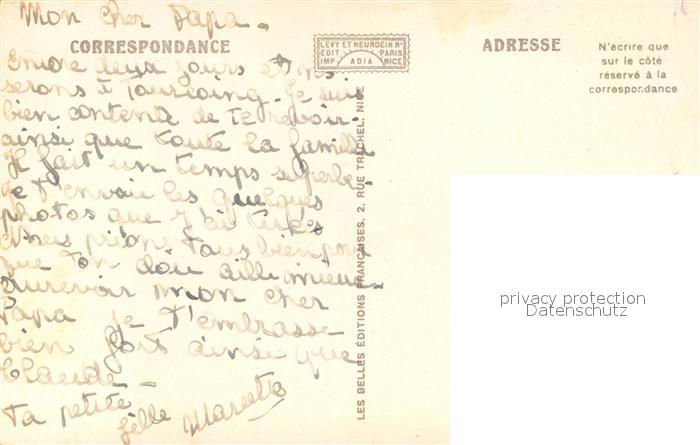 Mon cher Papa -
CORRESPONDANCE
LÉVY ET NEURDEIN Rs
ÉDIT. PARIS
IMP. ADIA NICE
ADRESSE
N'écrire que
sur le côté
réservé à la
correspondance
Encore deux jours et ns
serons à Tourcoing. Je suis
bien contente de te revoir
ainsi que toute la famille
Il fait un temps superbe -
je t'envoie les quelques
photos que j'ai tirées
Nous prions tous bien pour
que ton dou aille mieux -
aurevoir mon cher
Papa je t'embrasse
bien fort ainsi que
Claude -
Ta petite
fille
LES BELLES ÉDITIONS FRANÇAISES, 2, RUE TRACHEL, NICE
privacy protection
Datenschutz